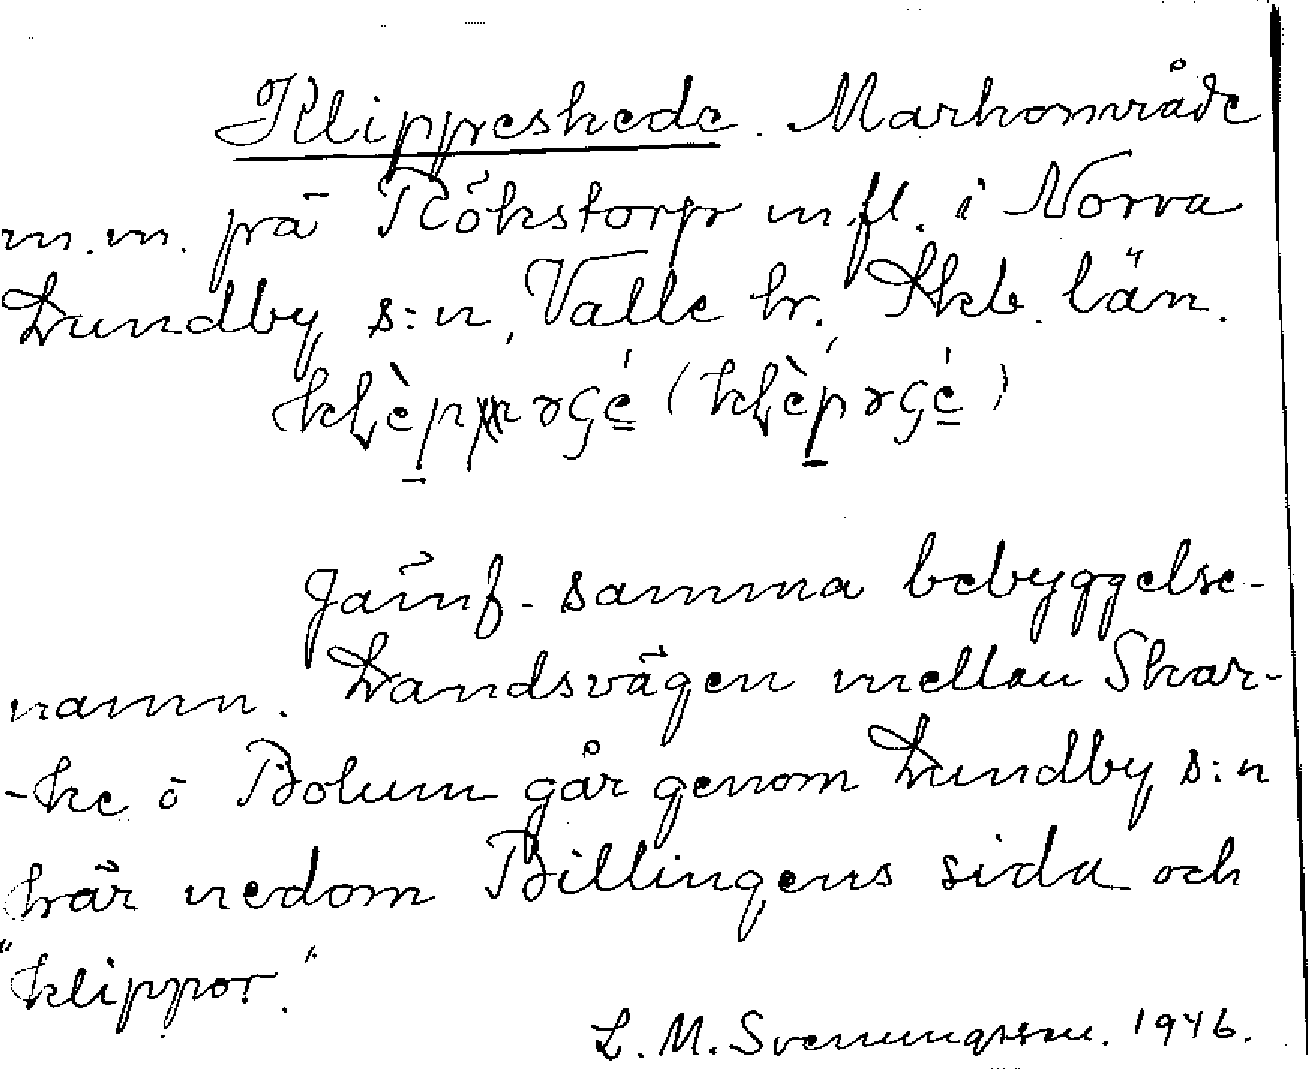 Klippeskede. Markområde
m.m. på Rökstorp m fl. i Norra
Lundby s:n, Valle hr. Skb. län.
Jämf. samma bebyggelse-
namn. Landsvägen mellan Skar-
-ke o Bolum går genom Lundby s:n
här nedom Billingens sida och
"klippor."
L. M. Svenungsson. 1946.